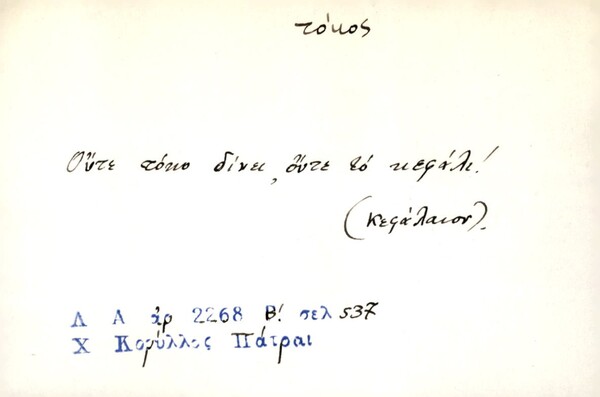 τόκος
Οὔτε τόκο δίνει, οὔτε τό κεφάλι!
(κεφάλαιον).
Λ Α ἀρ 2268 Β! σελ 537
Χ Κορύλλος Πάτραι